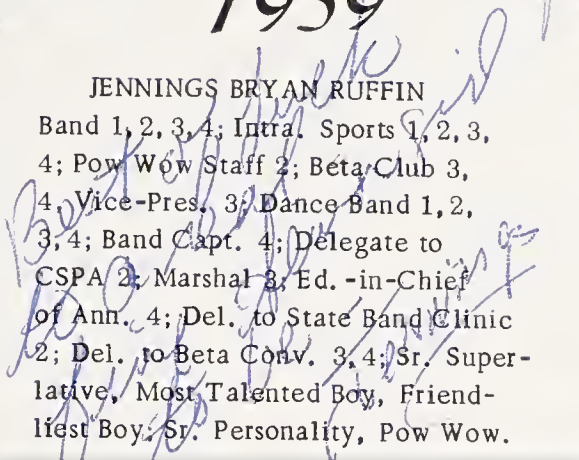 1959
JENNINGS BRYAN RUFFIN
Band 1, 2, 3, 4; Intra. Sports 1, 2, 3,
4; Pow Wow Staff 2; Beta Club 3,
4, Vice-Pres. 3; Dance Band 1, 2,
3, 4; Band Capt. 4; Delegate to
CSPA 2; Marshal 3; Ed. -in-Chief
of Ann. 4; Del. to State Band Clinic
2; Del. to Beta Conv. 3, 4; Sr. Super-
lative, Most Talented Boy, Friend-
liest Boy; Sr. Personality, Pow Wow.
Best of luck